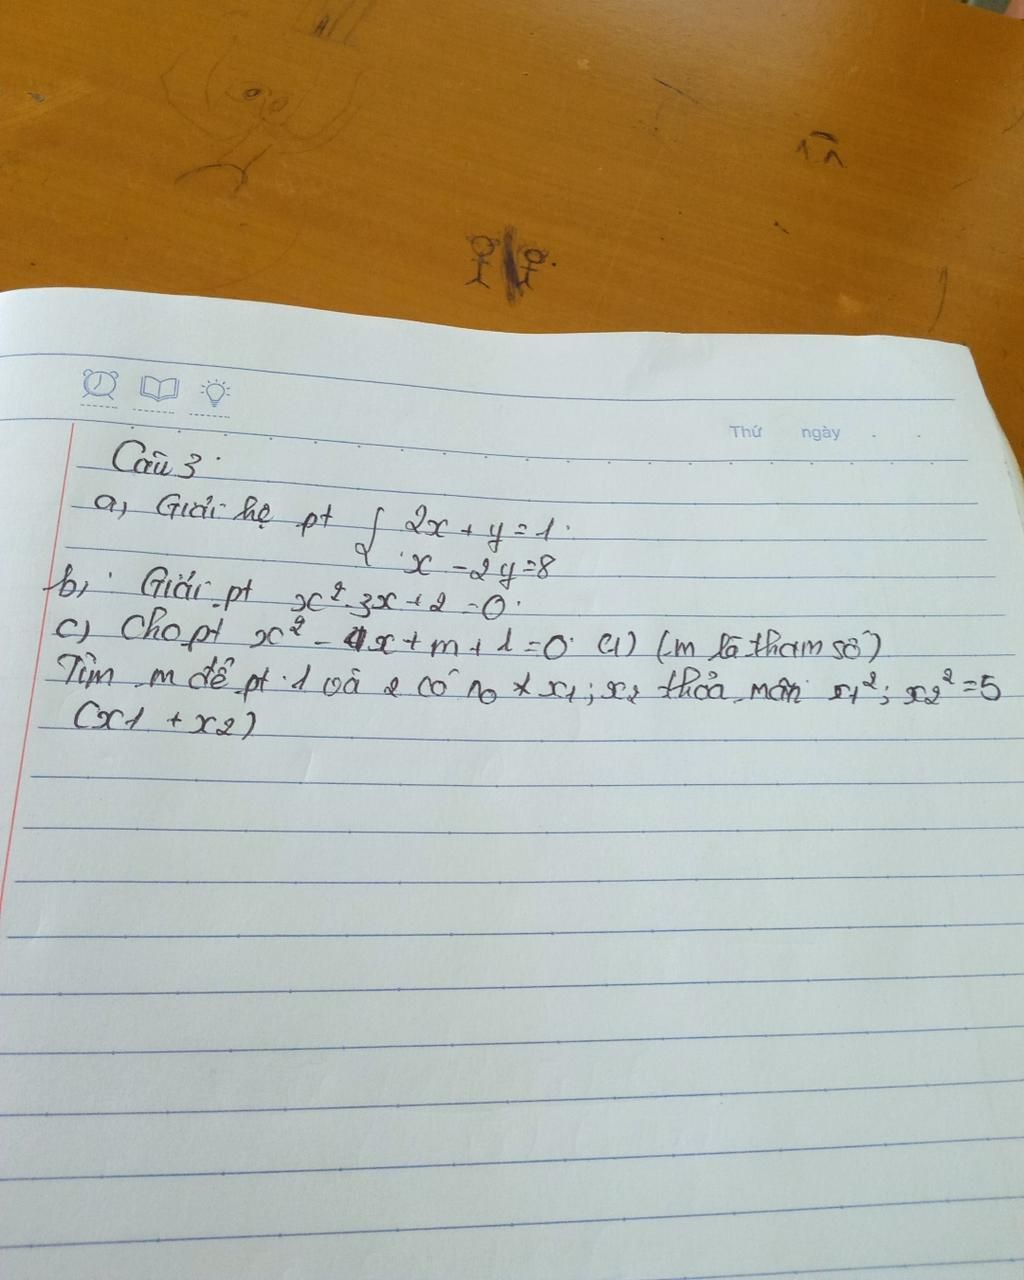 Thứ ngày
Câu 3
a, Giải hệ pt { 2x + y = 1
x - 2y = 8
b, Giải pt x² - 3x + 2 = 0
c) Cho pt x² - 4x + m + 1 = 0 (1) (m là tham số)
Tìm m để pt 1 và 2 có no x1; x2 thỏa mãn x1²; x2² = 5
(x1 + x2)